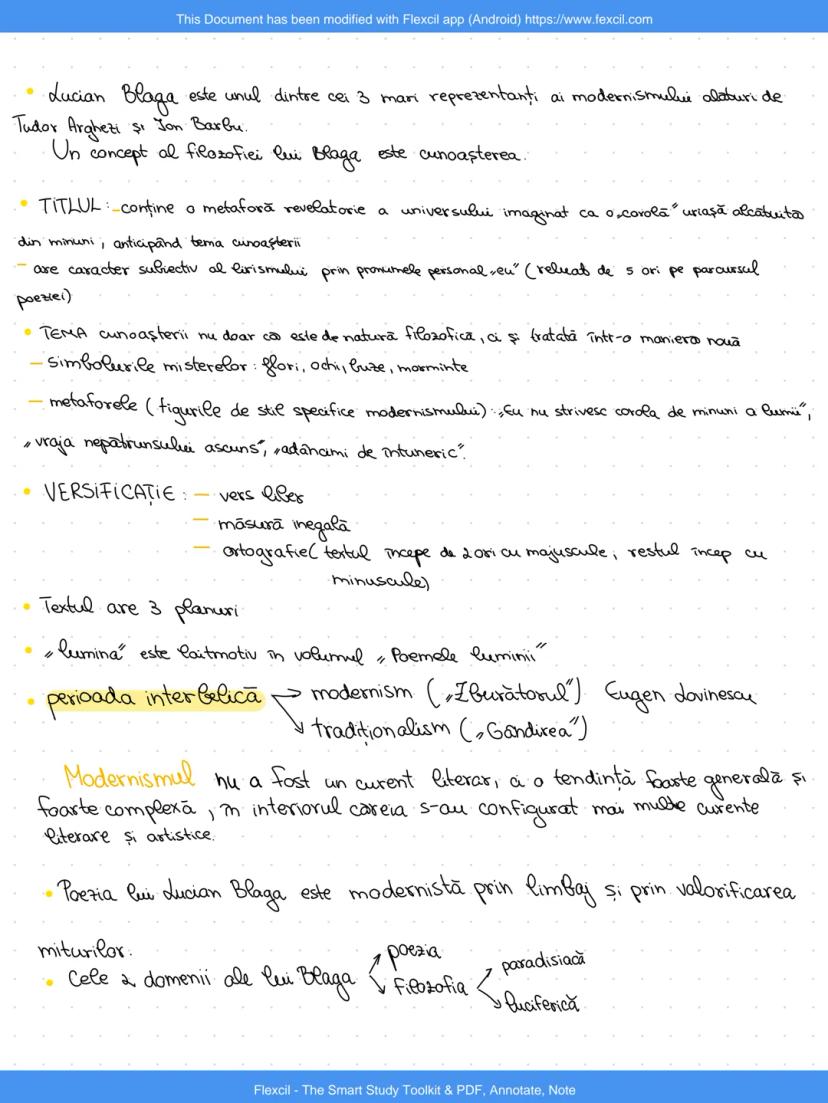 This Document has been modified with Flexcil app (Android) https://www.fexcil.com
• Lucian Blaga este unul dintre cei 3 mari reprezentanți ai modernismului alături de
Tudor Arghezi și Ion Barbu.
Un concept al filozofiei lui Blaga este cunoașterea.
• TITLUL: - conține o metaforă revelatorie a universului imaginat ca o „corolă" uriașă alcătuită
din minuni, anticipând tema cunoașterii
- are caracter subiectiv al lirismului prin pronumele personal „eu" (reluat de 5 ori pe parcursul
poeziei)
• TEMA cunoașterii nu doar că este de natură filozofică, ci și tratată într-o manieră nouă
- simbolurile misterelor: flori, ochi, buze, morminte
- metaforele (figurile de stil specifice modernismului): „Eu nu strivesc corola de minuni a lumii",
„vraja nepătrunsului ascuns", „adâncimi de întuneric".
• VERSIFICAȚIE: - vers liber
- măsură inegală
- ortografie (textul începe de 2 ori cu majuscule, restul încep cu
minuscule)
• Textul are 3 planuri
• „lumina" este laitmotiv în volumul „Poemele luminii"
• perioada interbelică → modernism („Zburătorul") Eugen Lovinescu
↘ tradiționalism („Gândirea")
Modernismul nu a fost un curent literar, ci o tendință foarte generală și
foarte complexă, în interiorul căreia s-au configurat mai multe curente
literare și artistice.
• Poezia lui Lucian Blaga este modernistă prin limbaj și prin valorificarea
miturilor.
• Cele 2 domenii ale lui Blaga ↗ poezia
↘ filozofia ↗ paradisiacă
↘ luciferică
Flexcil - The Smart Study Toolkit & PDF, Annotate, Note